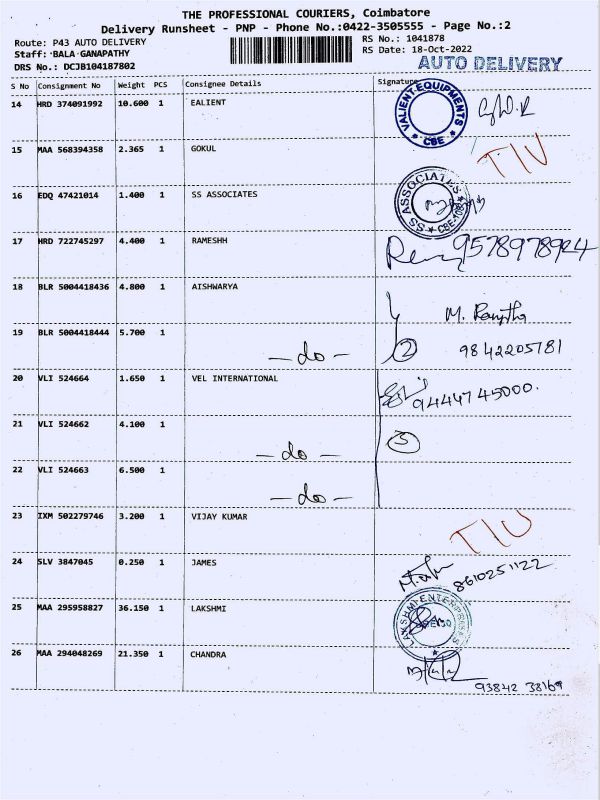 THE PROFESSIONAL COURIERS, Coimbatore
Delivery Runsheet - PNP - Phone No.:0422-3505555 - Page No.:2
Route: P43 AUTO DELIVERY
Staff: BALA GANAPATHY
DRS No.: DCJB104187802
RS No.: 1041878
RS Date: 18-Oct-2022
AUTO DELIVERY
S No Consignment No Weight PCS Consignee Details Signature
14 HRD 374091992 10.600 1 EALIENT
VALIENT EQUIPMENTS CBE
15 MAA 568394358 2.365 1 GOKUL
16 EDQ 47421014 1.400 1 SS ASSOCIATES
SS ASSOCIATES
17 HRD 722745297 4.400 1 RAMESHH
18 BLR 5004418436 4.800 1 AISHWARYA
19 BLR 5004418444 5.700 1 - do - 2 9842205781
20 VLI 524664 1.650 1 VEL INTERNATIONAL 9444745000.
21 VLI 524662 4.100 1 - do - 3
22 VLI 524663 6.500 1 - do -
23 IXM 502279746 3.200 1 VIJAY KUMAR
24 SLV 3847045 0.250 1 JAMES 8610251122
25 MAA 295958827 36.150 1 LAKSHMI
LAKSHMI ENTERPRISES
26 MAA 294048269 21.350 1 CHANDRA
93842 38169